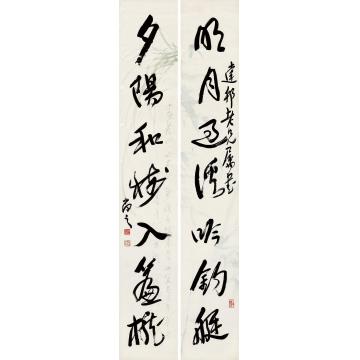 明月過溪吟釣艇
建邦老兄屬
夕陽和樹入簾櫳